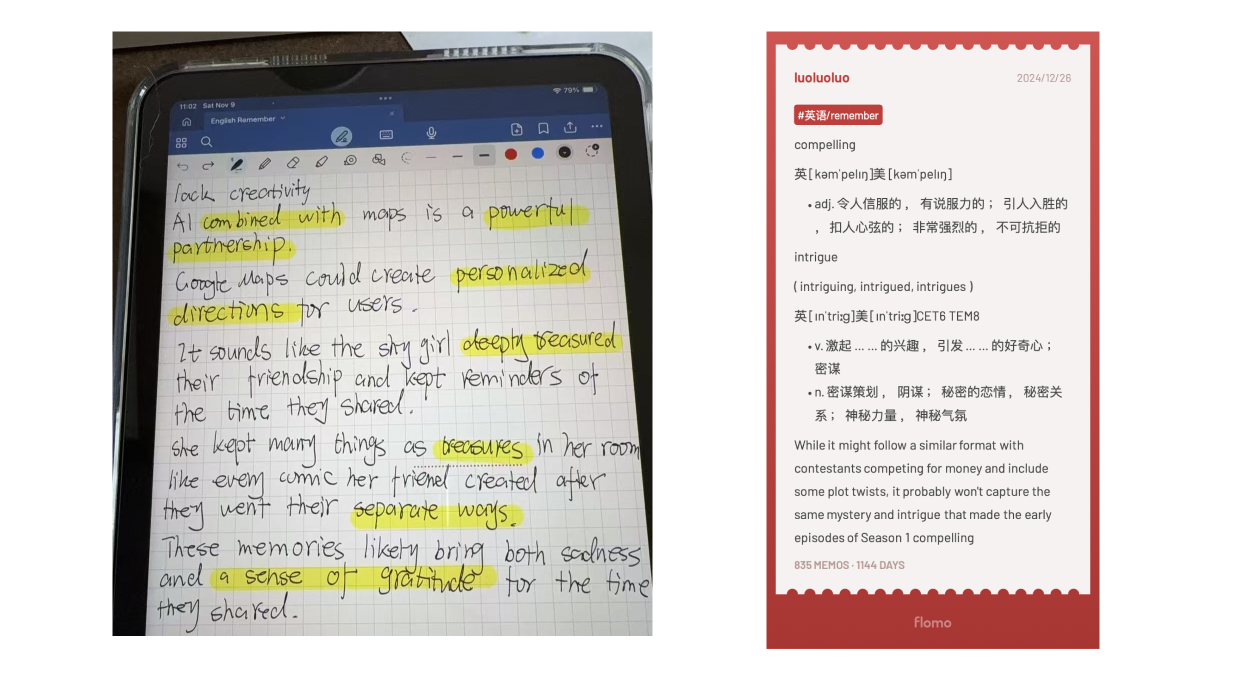 11:02 Sat Nov 9
79%
English Remember
lack creativity
AI combined with maps is a powerful
partnership.
Google Maps could create personalized
directions for users.
It sounds like the shy girl deeply treasured
their friendship and kept reminders of
the time they shared.
she kept many things as treasures in her room
like every comic her friend created after
they went their separate ways.
These memories likely bring both sadness
and a sense of gratitude for the time
they shared.
luoluoluo
2024/12/26
#英语/remember
compelling
英[kəmˈpelɪŋ]美[kəmˈpelɪŋ]
• adj. 令人信服的， 有说服力的； 引人入胜的
， 扣人心弦的； 非常强烈的， 不可抗拒的
intrigue
( intriguing, intrigued, intrigues )
英[ɪnˈtriːɡ]美[ɪnˈtriːɡ]CET6 TEM8
• v. 激起 ... ... 的兴趣， 引发 ... ... 的好奇心；
密谋
• n. 密谋策划， 阴谋； 秘密的恋情， 秘密关
系； 神秘力量， 神秘气氛
While it might follow a similar format with
contestants competing for money and include
some plot twists, it probably won't capture the
same mystery and intrigue that made the early
episodes of Season 1 compelling
835 MEMOS · 1144 DAYS
flomo